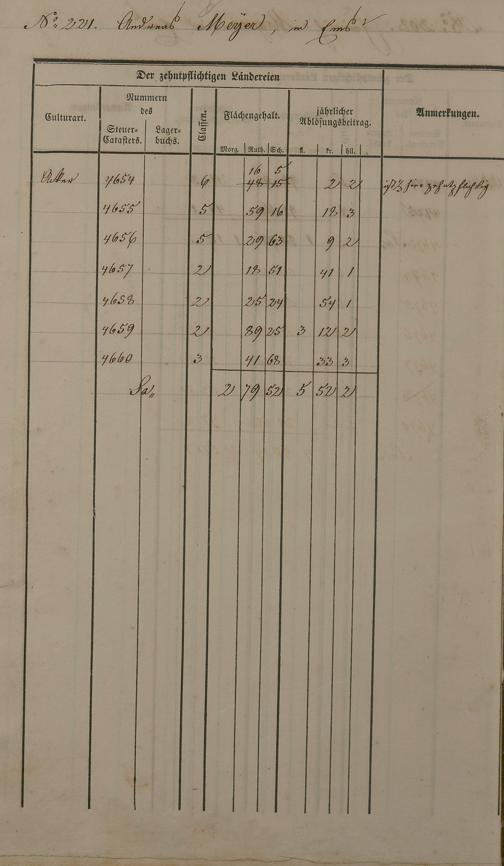 No 221. Andreas Meyer, in Ems
Der zehntpflichtigen Ländereien
Culturart. Nummern des Steuer-Catasters. Lager-buchs. Classen. Flächengehalt. jährlicher Ablösungsbeitrag. Anmerkungen.
Morg. Ruth. Sch. fl. kr. hll.
16 5
Acker 4654 6 48 15 2 2 ist ⅓ zehntpflichtig
4655 5 59 16 18 3
4656 5 29 63 9 2
4657 2 18 51 41 1
4658 2 25 24 54 1
4659 2 89 25 3 12 2
4660 3 41 68 33 3
Sa. 2 79 52 5 52 2